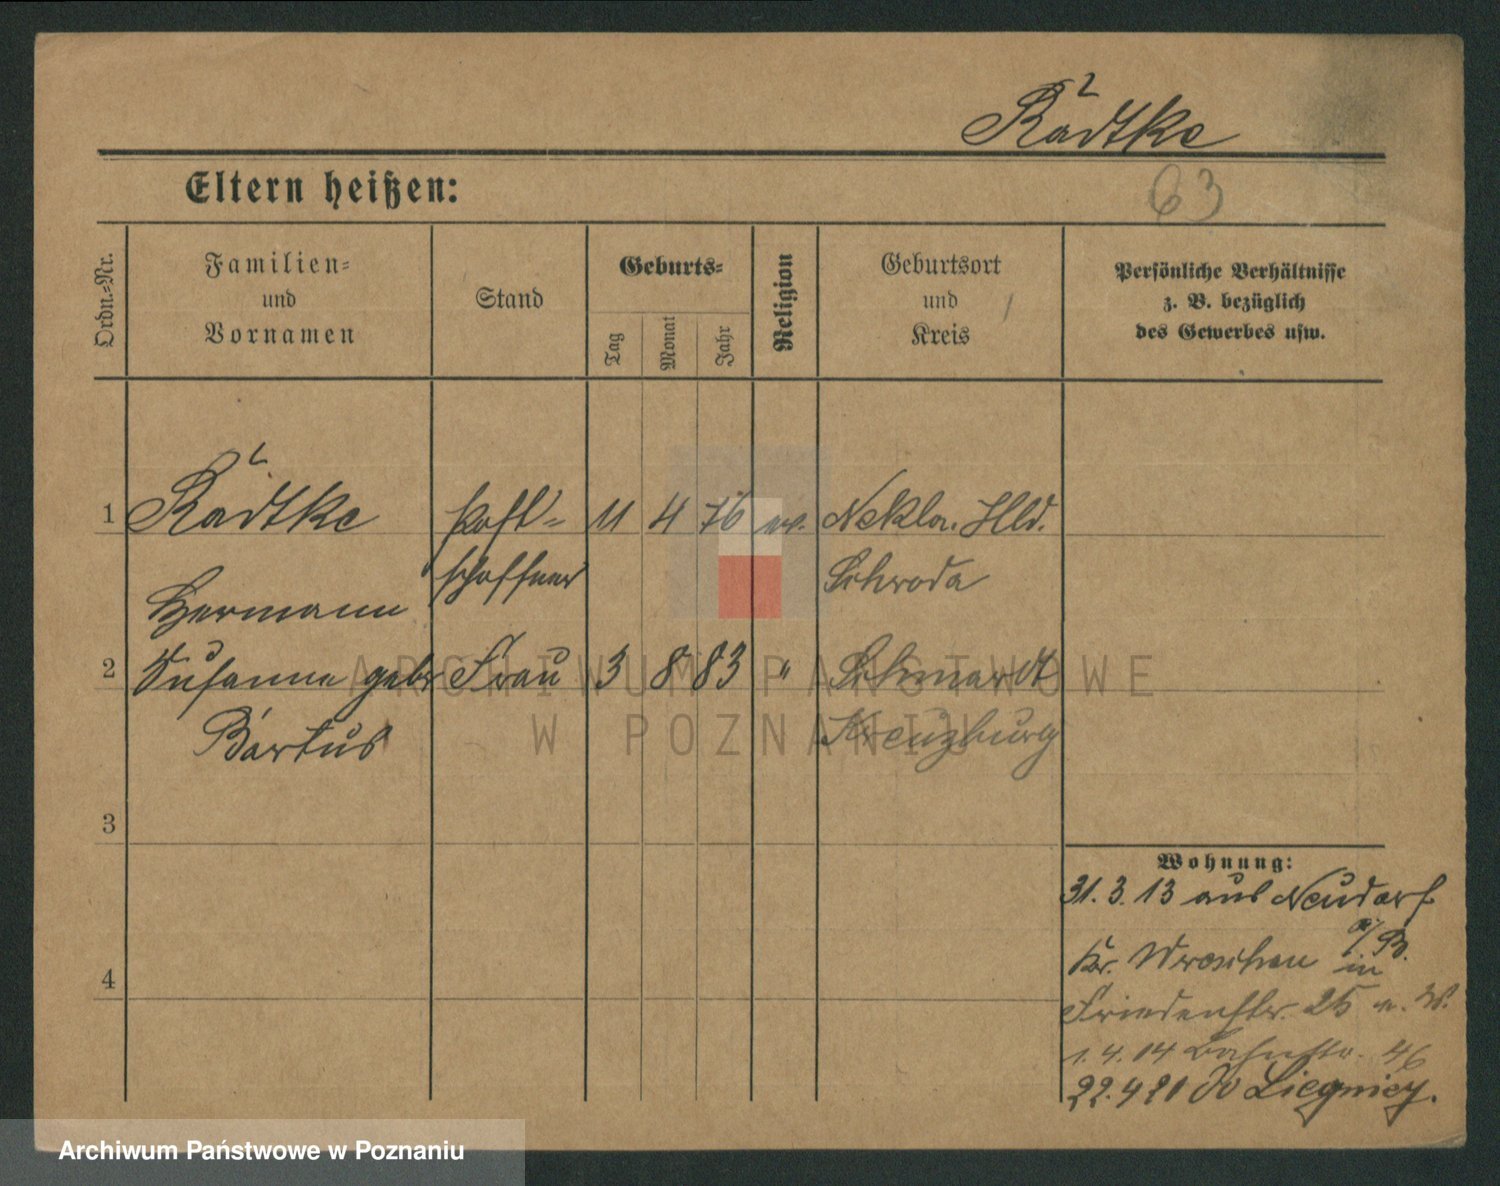 Rädtke
Eltern heißen:
63
Ordn.-Nr.
Familien-
und
Vornamen
Stand
Geburts-
Tag
Monat
Jahr
Religion
Geburtsort
und
Kreis
Persönliche Verhältnisse
z. B. bezüglich
des Gewerbes usw.
1 Rädtke Post- 11 4 76 ev. Nekla. Hld.
schaffner Schroda
Hermann
2 Susanne geb. Frau 3 8 83 " Schmardt
Bartus Kreuzburg
3
4
Wohnung:
31. 3. 13 aus Neudorf
a/B.
Kr. Wreschen in
Friedenstr. 25
1. 4. 14 Bahnstr. 46
22. 4 21 Liegnitz.
ARCHIWUM PAŃSTWOWE
W POZNANIU
Archiwum Państwowe w Poznaniu